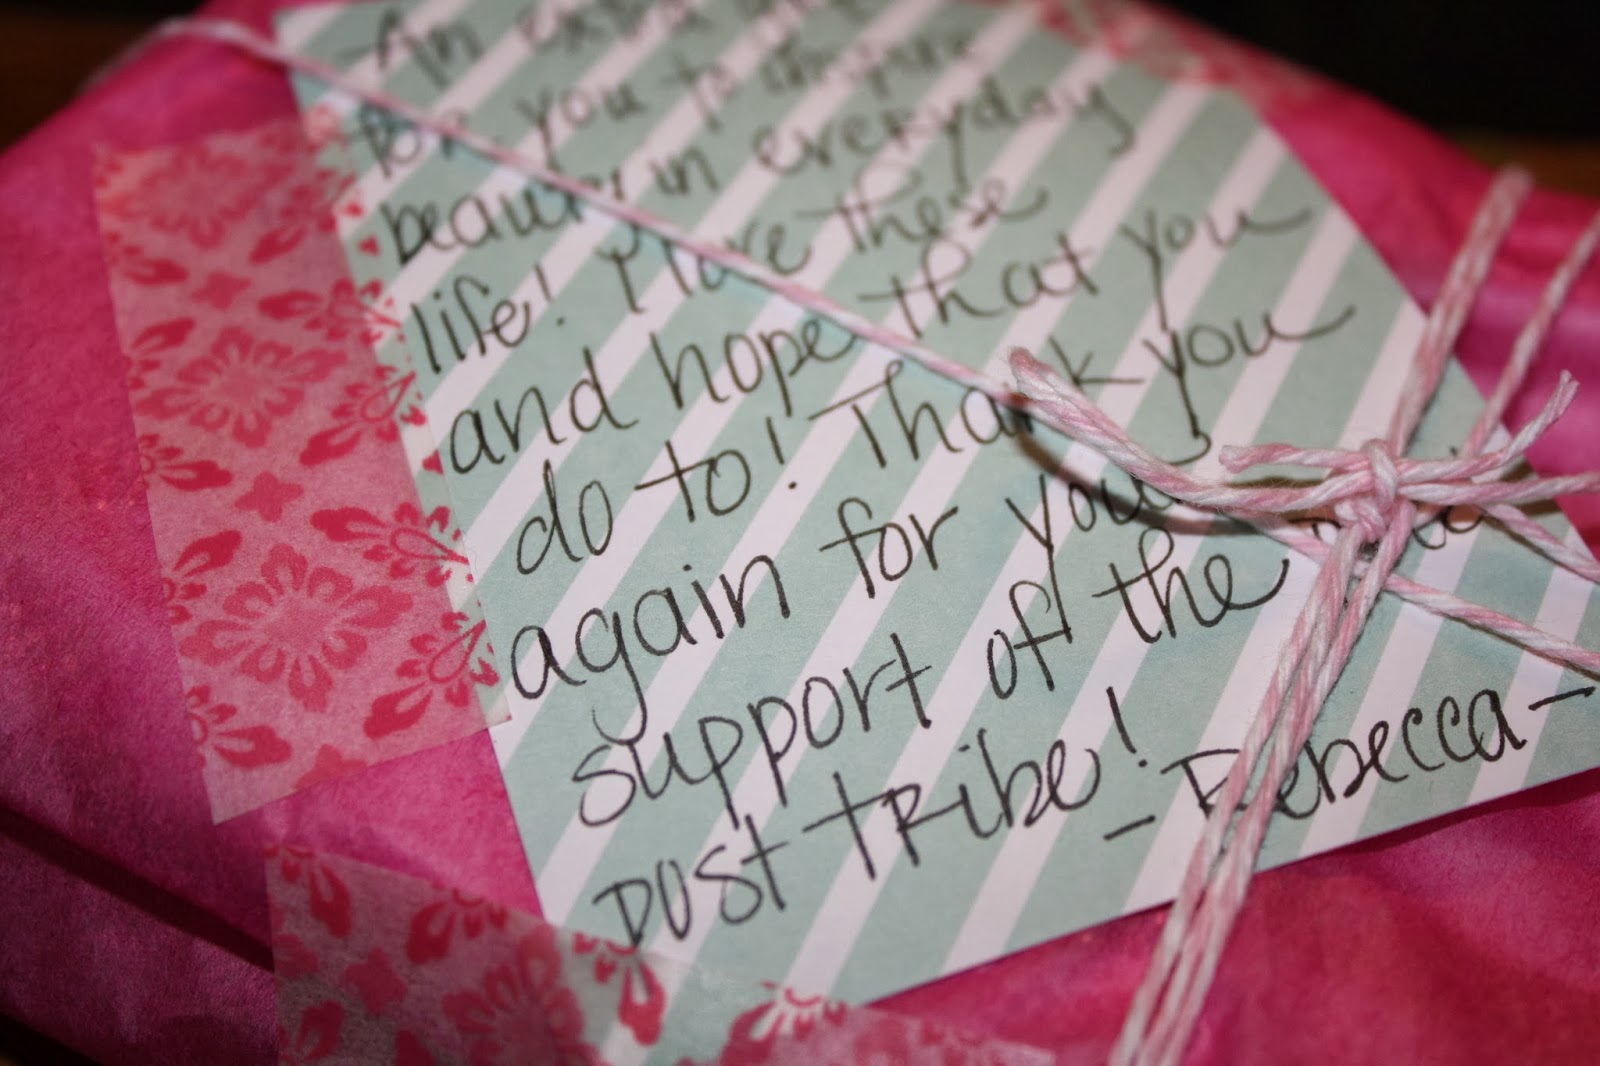 An extra
for you to inspire
beauty in everyday
life! I love these
and hope that you
do to! Thank you
again for your
support of the
Dust Tribe!
- Rebecca -